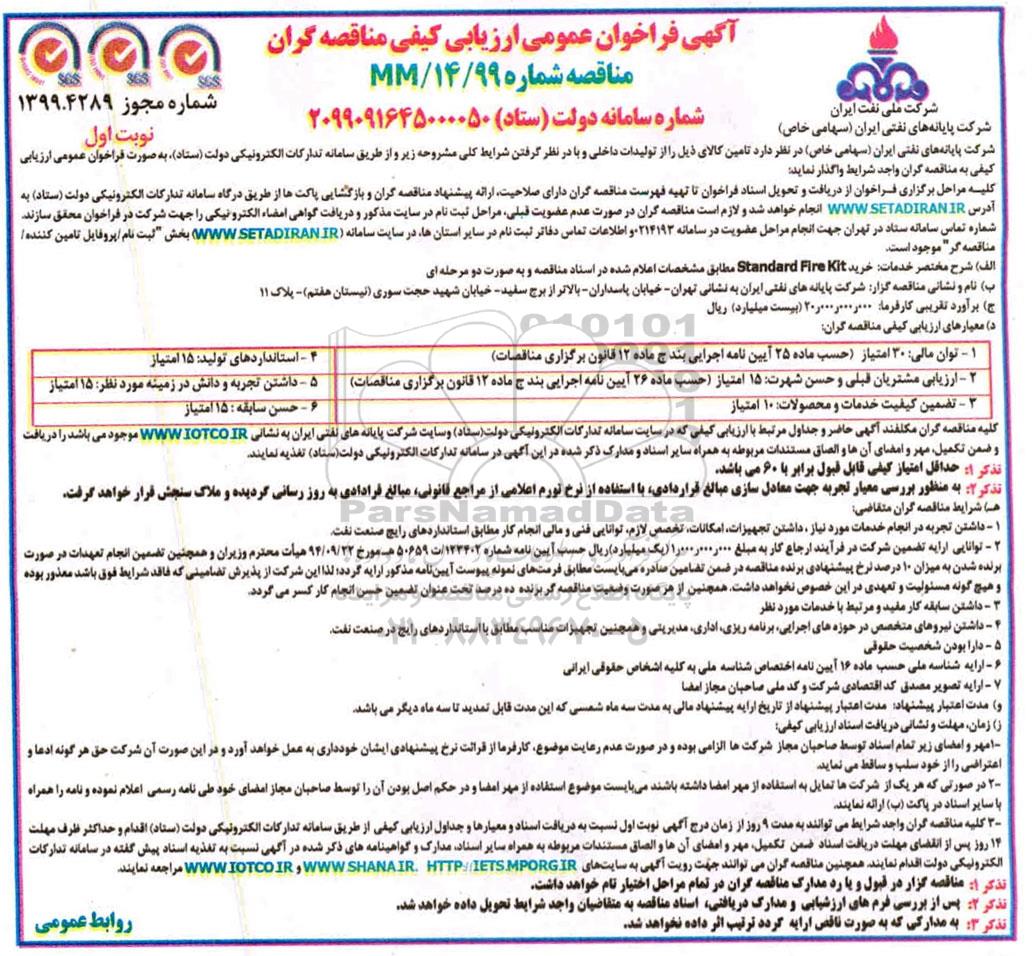 آگهی فراخوان عمومی ارزیابی کیفی مناقصه گران
مناقصه شماره MM/14/99
شماره سامانه دولت (ستاد) ۲۰۹۹۰۹۱۶۴۵۰۰۰۰۵۰
شرکت ملی نفت ایران
شرکت پایانه‌های نفتی ایران (سهامی خاص)
SGS SGS SGS
شماره مجوز ۱۳۹۹.۴۲۸۹
نوبت اول
شرکت پایانه‌های نفتی ایران (سهامی خاص) در نظر دارد تامین کالای ذیل را از تولیدات داخلی و با در نظر گرفتن شرایط کلی مشروحه زیر و از طریق سامانه تدارکات الکترونیکی دولت (ستاد)، به صورت فراخوان عمومی ارزیابی
کیفی به مناقصه گران واجد شرایط واگذار نماید:
کلیه مراحل برگزاری فراخوان از دریافت و تحویل اسناد فراخوان تا تهیه فهرست مناقصه گران دارای صلاحیت، ارائه پیشنهاد مناقصه گران و بازگشایی پاکت ها از طریق درگاه سامانه تدارکات الکترونیکی دولت (ستاد) به
آدرس WWW.SETADIRAN.IR انجام خواهد شد و لازم است مناقصه گران در صورت عدم عضویت قبلی، مراحل ثبت نام در سایت مذکور و دریافت گواهی امضاء الکترونیکی را جهت شرکت در فراخوان محقق سازند.
شماره تماس سامانه ستاد در تهران جهت انجام مراحل عضویت در سامانه ۰۲۱۴۱۹۳ و اطلاعات تماس دفاتر ثبت نام در سایر استان ها، در سایت سامانه (WWW.SETADIRAN.IR) بخش "ثبت نام/پروفایل تامین کننده/
مناقصه گر" موجود است.
الف) شرح مختصر خدمات: خرید Standard Fire Kit مطابق مشخصات اعلام شده در اسناد مناقصه و به صورت دو مرحله ای
ب) نام و نشانی مناقصه گزار: شرکت پایانه های نفتی ایران به نشانی تهران- خیابان پاسداران- بالاتر از برج سفید- خیابان شهید حجت سوری (نیستان هفتم)- پلاک ۱۱
ج) برآورد تقریبی کارفرما: ۲۰٫۰۰۰٫۰۰۰٫۰۰۰ (بیست میلیارد) ریال
د) معیارهای ارزیابی کیفی مناقصه گران:
۱- توان مالی: ۳۰ امتیاز (حسب ماده ۲۵ آیین نامه اجرایی بند ج ماده ۱۲ قانون برگزاری مناقصات)
۴- استانداردهای تولید: ۱۵ امتیاز
۲- ارزیابی مشتریان قبلی و حسن شهرت: ۱۵ امتیاز (حسب ماده ۲۶ آیین نامه اجرایی بند ج ماده ۱۲ قانون برگزاری مناقصات)
۵- داشتن تجربه و دانش در زمینه مورد نظر: ۱۵ امتیاز
۳- تضمین کیفیت خدمات و محصولات: ۱۰ امتیاز
۶- حسن سابقه: ۱۵ امتیاز
کلیه مناقصه گران مکلفند آگهی حاضر و جداول مرتبط با ارزیابی کیفی که در سایت سامانه تدارکات الکترونیکی دولت(ستاد) وسایت شرکت پایانه های نفتی ایران به نشانی WWW.IOTCO.IR موجود می باشد را دریافت
و ضمن تکمیل، مهر و امضای آن ها و الصاق مستندات مربوطه به همراه سایر اسناد و مدارک ذکر شده در این آگهی در سامانه تدارکات الکترونیکی دولت(ستاد) تغذیه نمایند.
تذکر ۱: حداقل امتیاز کیفی قابل قبول برابر با ۶۰ می باشد.
تذکر۲: به منظور بررسی معیار تجربه جهت معادل سازی مبالغ قراردادی، با استفاده از نرخ تورم اعلامی از مراجع قانونی، مبالغ قرادادی به روز رسانی گردیده و ملاک سنجش قرار خواهد گرفت.
هـ) شرایط مناقصه گران متقاضی:
۱- داشتن تجربه در انجام خدمات مورد نیاز، داشتن تجهیزات، امکانات، تخصص لازم، توانایی فنی و مالی انجام کار مطابق استانداردهای رایج صنعت نفت.
۲- توانایی ارایه تضمین شرکت در فرآیند ارجاع کار به مبلغ ۱٫۰۰۰٫۰۰۰٫۰۰۰ (یک میلیارد) ریال حسب آیین نامه شماره ۱۲۳۴۰۲/ت ۵۰۶۵۹ هـ مورخ ۹۴/۰۹/۲۲ هیأت محترم وزیران و همچنین تضمین انجام تعهدات در صورت
برنده شدن به میزان ۱۰ درصد نرخ پیشنهادی برنده مناقصه در ضمن تضامین صادره می‌بایست مطابق فرمت‌های نمونه پیوست آیین‌نامه مذکور ارایه گردد؛ لذا این شرکت از پذیرش تضامینی که فاقد شرایط فوق باشد معذور بوده
و هیچ گونه مسئولیت و تعهدی در این خصوص نخواهد داشت. همچنین از هر صورت وضعیت مناقصه گر برنده ده درصد تحت عنوان تضمین حسن انجام کار کسر می گردد.
۳- داشتن سابقه کار مفید و مرتبط با خدمات مورد نظر
۴- داشتن نیروهای متخصص در حوزه های اجرایی، برنامه ریزی، اداری، مدیریتی و همچنین تجهیزات مناسب مطابق با استانداردهای رایج در صنعت نفت.
۵- دارا بودن شخصیت حقوقی
۶- ارایه شناسه ملی حسب ماده ۱۶ آیین نامه اختصاص شناسه ملی به کلیه اشخاص حقوقی ایرانی
۷- ارایه تصویر مصدق کد اقتصادی شرکت و کد ملی صاحبان مجاز امضا
و) مدت اعتبار پیشنهاد: مدت اعتبار پیشنهاد از تاریخ ارایه پیشنهاد مالی به مدت سه ماه شمسی که این مدت قابل تمدید تا سه ماه دیگر می باشد.
ز) زمان، مهلت و نشانی دریافت اسناد ارزیابی کیفی:
۱-مهر و امضای زیر تمام اسناد توسط صاحبان مجاز شرکت ها الزامی بوده و در صورت عدم رعایت موضوع، کارفرما از قرائت نرخ پیشنهادی ایشان خودداری به عمل خواهد آورد و در این صورت آن شرکت حق هر گونه ادعا و
اعتراضی را از خود سلب و ساقط می نماید.
۲-در صورتی که هر یک از شرکت ها تمایل به استفاده از مهر امضا داشته باشند می‌بایست موضوع استفاده از مهر امضا و در حکم اصل بودن آن را توسط صاحبان مجاز امضای خود طی نامه رسمی اعلام نموده و نامه را همراه
با سایر اسناد در پاکت (ب) ارائه نمایند.
۳-کلیه مناقصه گران واجد شرایط می توانند به مدت ۹ روز از زمان درج آگهی نوبت اول نسبت به دریافت اسناد و معیارها و جداول ارزیابی کیفی از طریق سامانه تدارکات الکترونیکی دولت (ستاد) اقدام و حداکثر ظرف مهلت
۱۴ روز پس از انقضای مهلت دریافت اسناد ضمن تکمیل، مهر و امضای آن ها و الصاق مستندات مربوطه به همراه سایر اسناد، مدارک و گواهینامه های ذکر شده در آگهی نسبت به تغذیه اسناد پیش گفته در سامانه تدارکات
الکترونیکی دولت اقدام نمایند. همچنین مناقصه گران می توانند جهت رویت آگهی به سایت‌های WWW.SHANA.IR. HTTP://IETS.MPORG.IR و WWW.IOTCO.IR مراجعه نمایند.
تذکر ۱: مناقصه گزار در قبول و یا رد مدارک مناقصه گران در تمام مراحل اختیار تام خواهد داشت.
تذکر ۲: پس از بررسی فرم های ارزشیابی و مدارک دریافتی، اسناد مناقصه به متقاضیان واجد شرایط تحویل داده خواهد شد.
تذکر ۳: به مدارکی که به صورت ناقص ارایه گردد ترتیب اثر داده نخواهد شد.
روابط عمومی
ParsNamadData
پایگاه اطلاع رسانی مناقصه و مزایده
۰۲۱-۸۸۳۴۹۶۷۰-۵